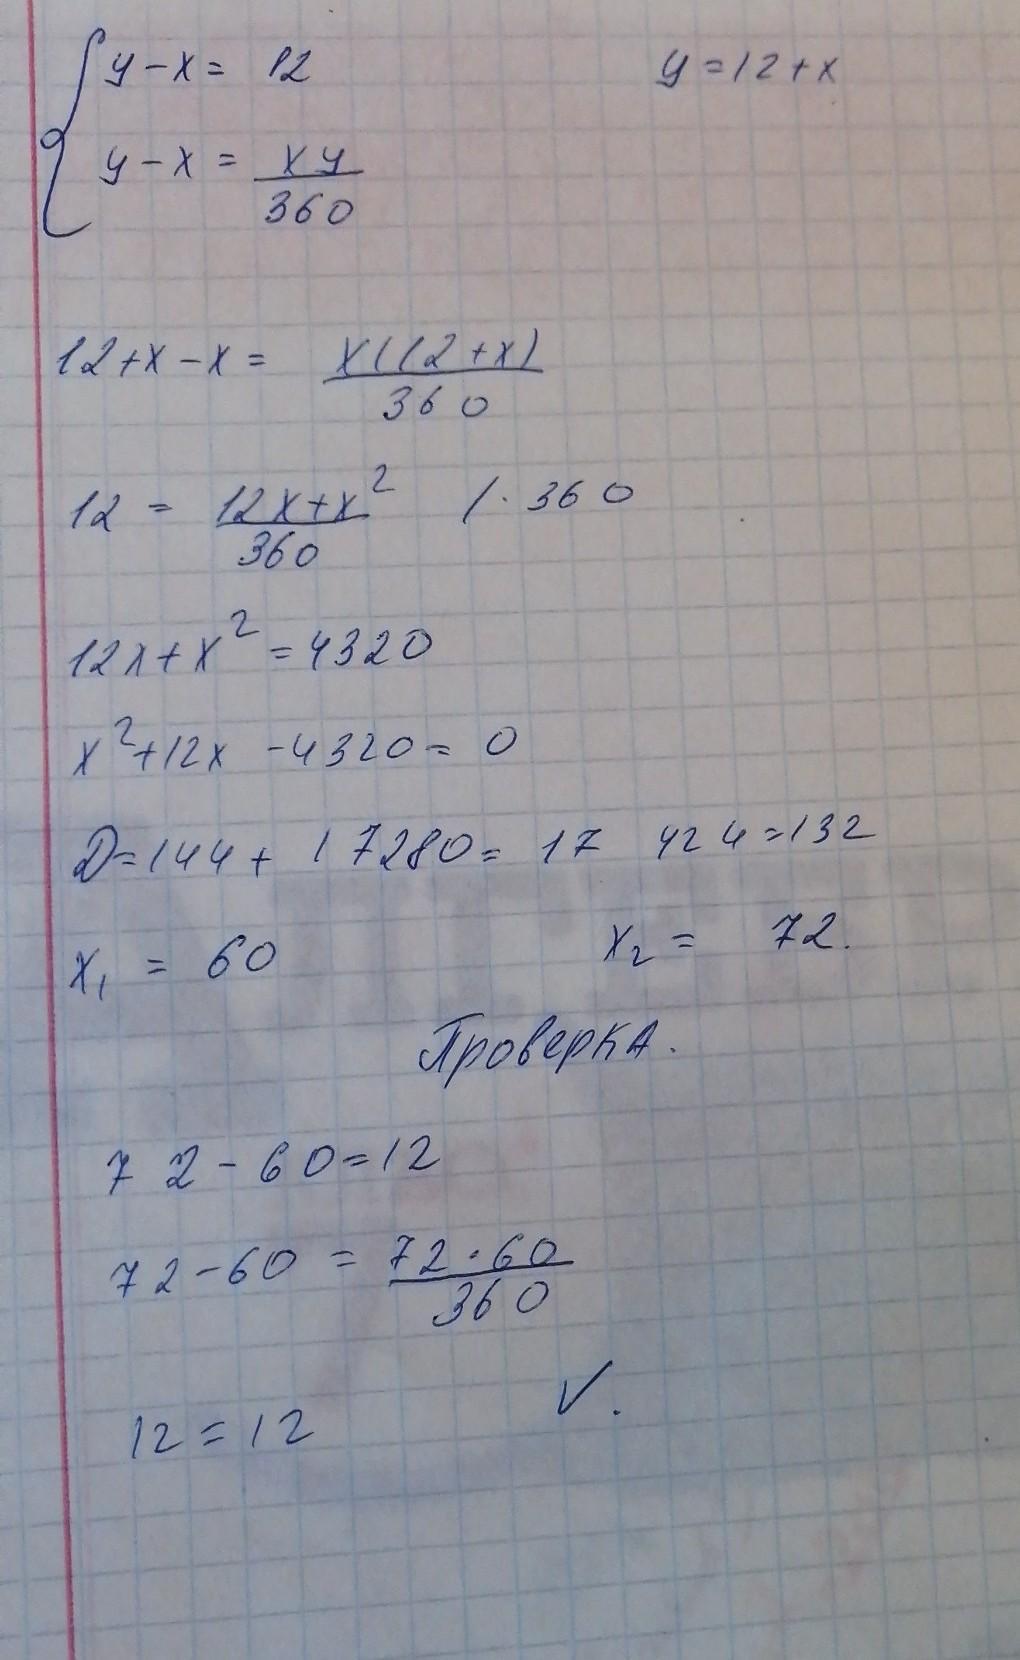 y - x = 12        y = 12 + x
y - x = xy/360
12 + x - x = x(12 + x)/360
12 = 12x + x²/360   / · 360
12x + x² = 4320
x² + 12x - 4320 = 0
D = 144 + 17280 = 17 424 = 132
x₁ = 60        x₂ = 72.
Проверка.
72 - 60 = 12
72 - 60 = 72 · 60/360
12 = 12        ✓.